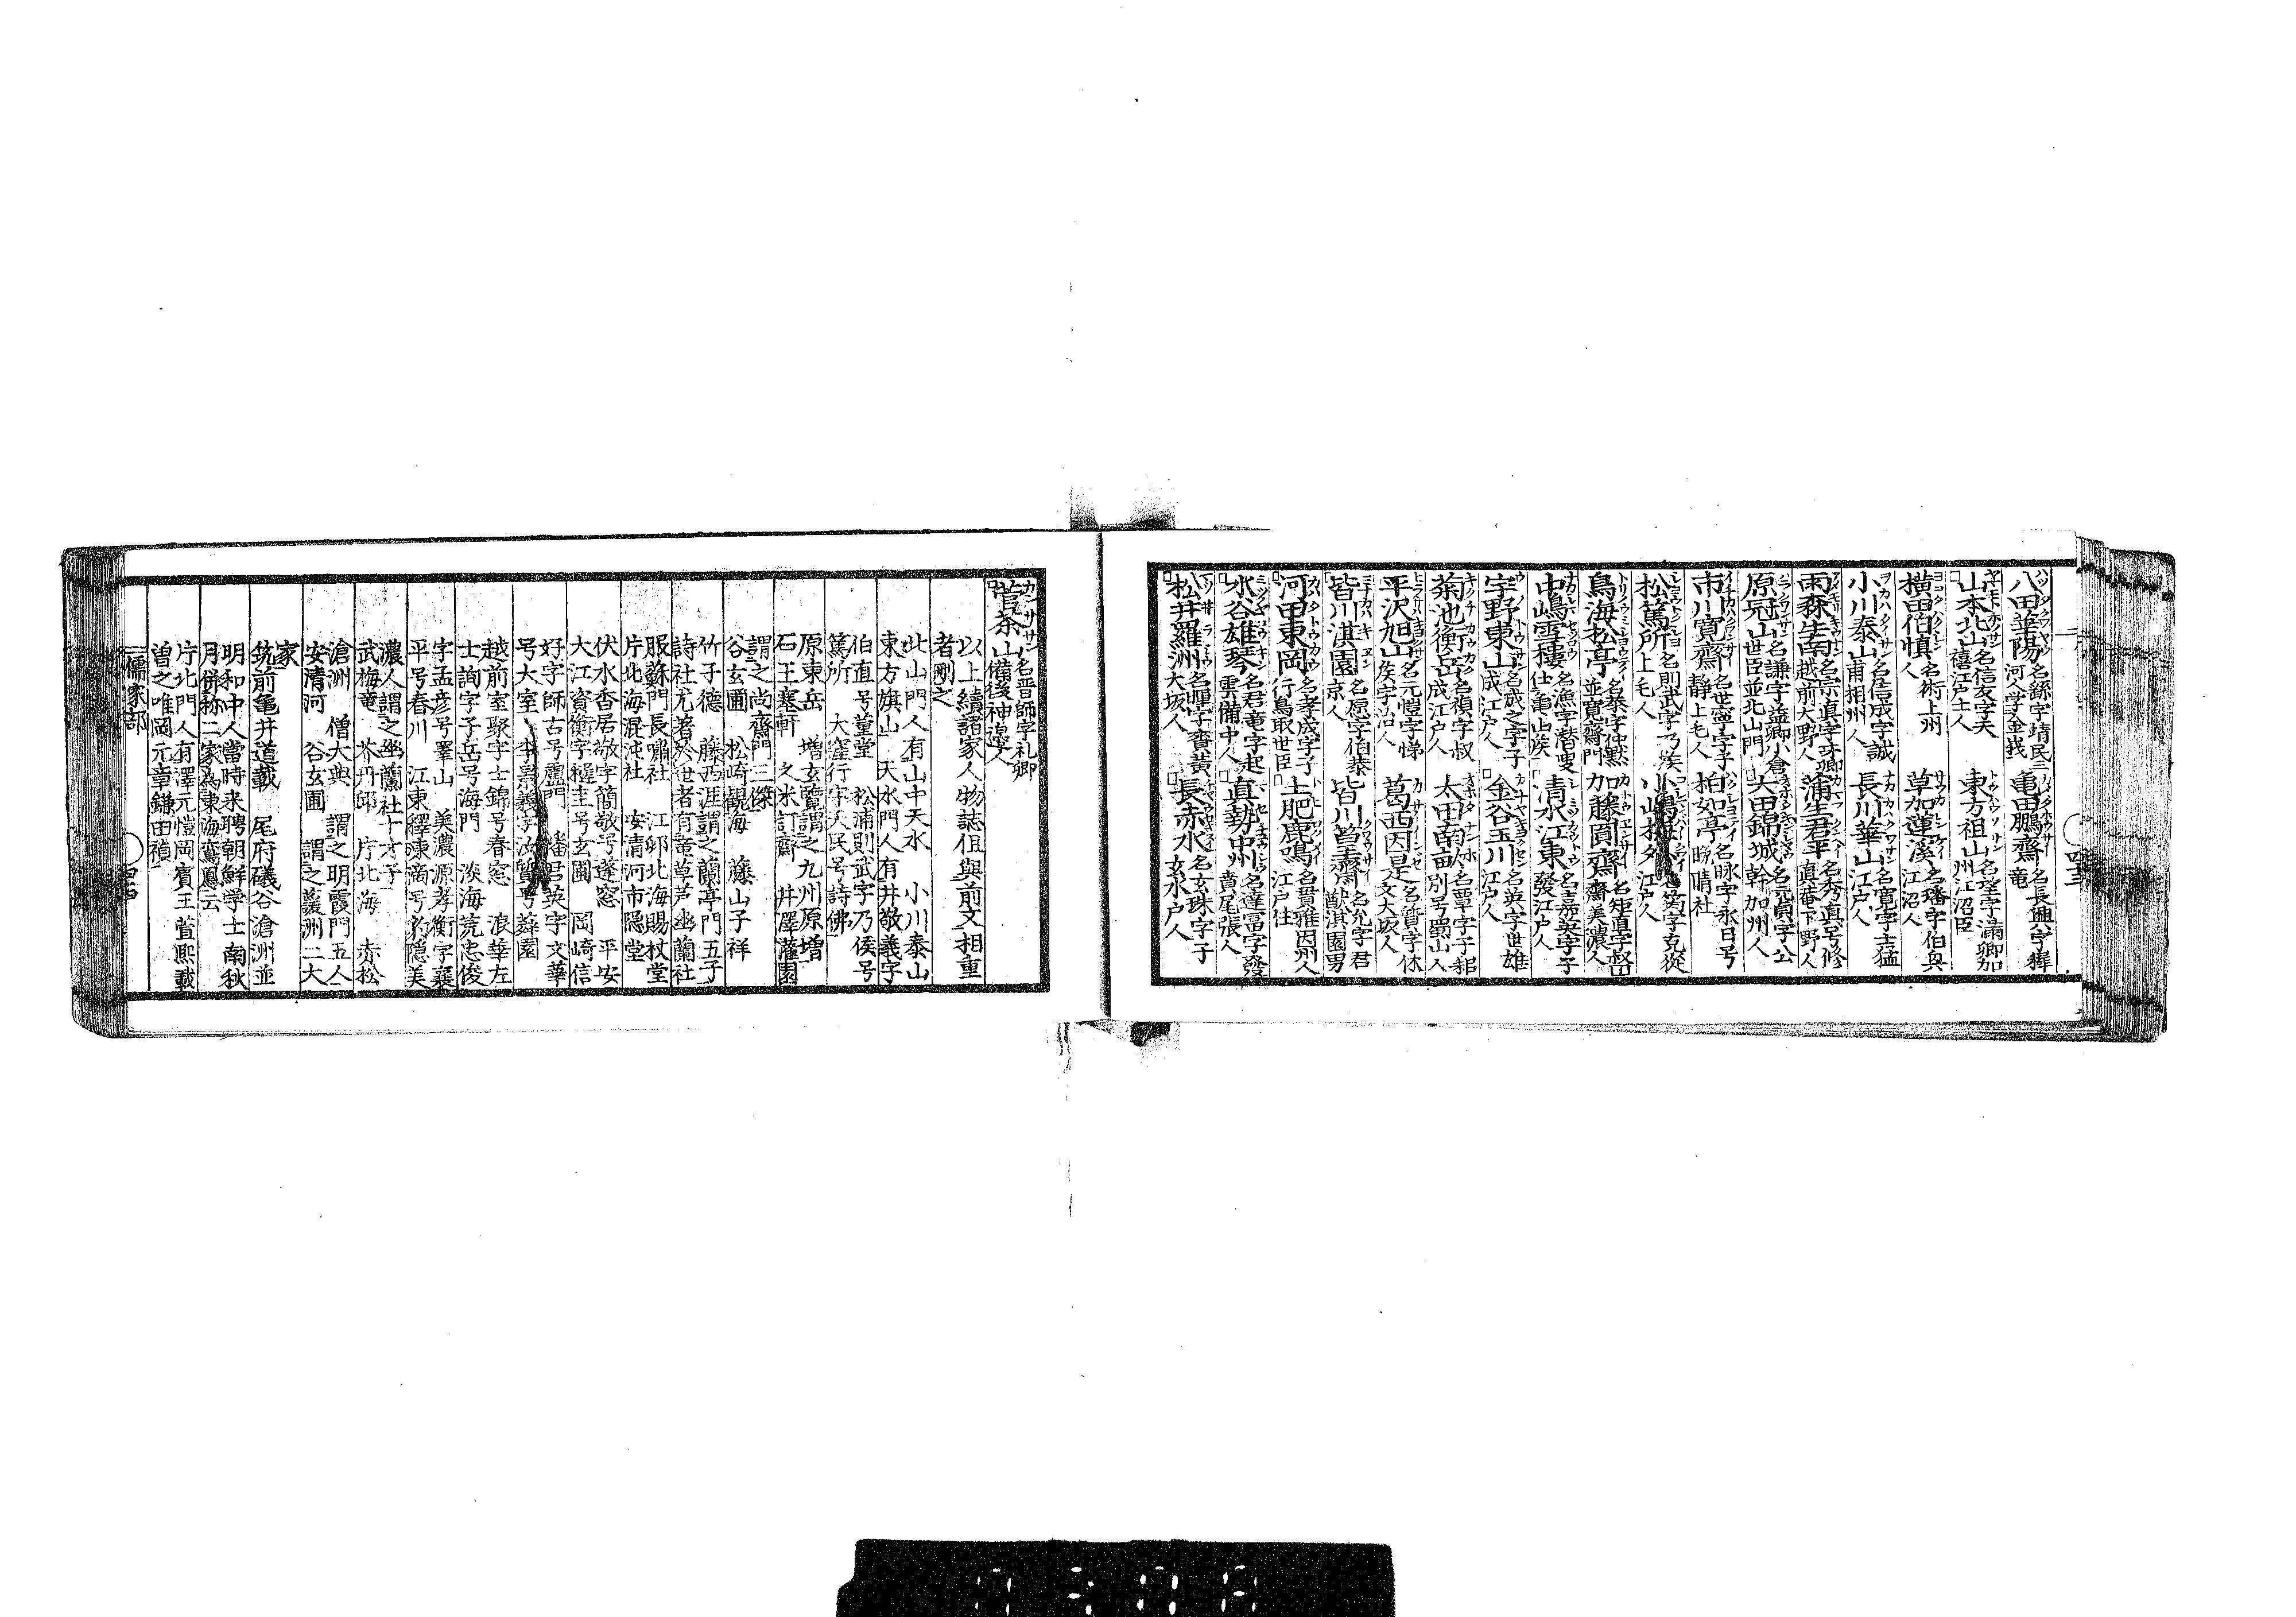 八田華陽 名繇字靖民三河人学金峩
亀田鵬齋 名長興字穉竜
山本北山 名信友字天禧江戸士人
東方祖山 名望字滿卿加州江沼臣
横田伯慎 名術上州人
草加蓮溪 名璠字伯與江沼人
小川泰山 名信成字誠甫相州人
長川華山 名寛字士猛江戸人
雨森牛南 名宗真字牙卿越前大野人
蒲生君平 名秀真号修直菴下野人
原冠山 名謙字益卿小倉世臣並北山門
大田錦城 名元貞字公幹加州人
市川寛齋 名世寧字子静上毛人
柏如亭 名昶字永日号晩晴社
松篤所 名則武字乃侯上毛人
鳥海松亭 名恭字仲黙並寛齋門
加藤圓齋 名矩直字督齋美濃人
中嶋雪樓 名漁字潜叟仕亀山族
清水江東 名嘉英字子發江戸人
宇野東山 名成之字子成江戸人
金谷玉川 名英字世雄江戸人
菊池衡岳 名禎字叔成江戸人
太田南畝 名覃字子耜別号蜀山人
平沢旭山 名元愷字悌侯字沿人
葛西因是 名質字休文大坂人
皆川淇園 名愿字伯恭京人
皆川篁齋 名允字君猷淇園男
河田東岡 名孝成字子行鳥取世臣
土肥鹿鳴 名貫雅因州人江戸住
水谷雄琴 名君竜字起雲備中人
直勢中州 名達冨字發賁尾張人
松井羅洲 名暉字賚黄大坂人
長赤水 名玄珠字子玄水戸人
菅茶山 名晋師字礼卿備後神邉人
以上續諸家人物誌但與前文相重
者刪之
北山門人有山中天水 小川泰山
東方旗山 天水門人有井敬義字
伯直号菫堂 松浦則武字乃侯号
篤所 大窪行字天民号詩佛
原東岳 増玄覽謂之九州原増
石王塞軒 久米訂齋 井澤灌園
謂之尚齋門三傑
谷玄圃 松崎観海 藤山子祥
竹子德 藤西涯謂之蘭亭門五子
詩社尤著於世者有竜草芦幽蘭社
服蘇門長嘯社 江邨北海賜杖堂
片北海混沌社 安清河市隠堂
伏水香居敬字簡敬号蓬窓 平安
大江資衡字穉圭号玄圃 岡崎信
好字師古号廬門 播君英字文華
号大室
越前室聚字士錦号春窓 浪華左
士詢字子岳号海門 淡海荒忠俊
字孟彦号澤山 美濃源孝衡字襄
平号春川 江東繹東裔号豹隠美
濃人謂之幽蘭社十才子
武梅竜 芥丹邱 片北海 赤松
滄洲 僧大典 謂之明霞門五人
安清河 谷玄圃 謂之蘐洲二大
家
筑前亀井道載 尾府礒谷滄洲並
明和中人當時来聘朝鮮学士南秋
月併称二家為東海鸞鳳云
片北門人有澤元愷岡賓王萱熙載
曽之唯岡元章鎌田禎
儒家部
四十三
四十四